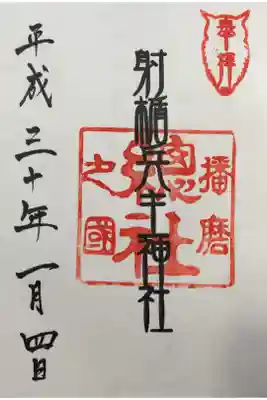 奉拝
射楯兵主神社
播磨
總社
之國
平成三十年一月四日